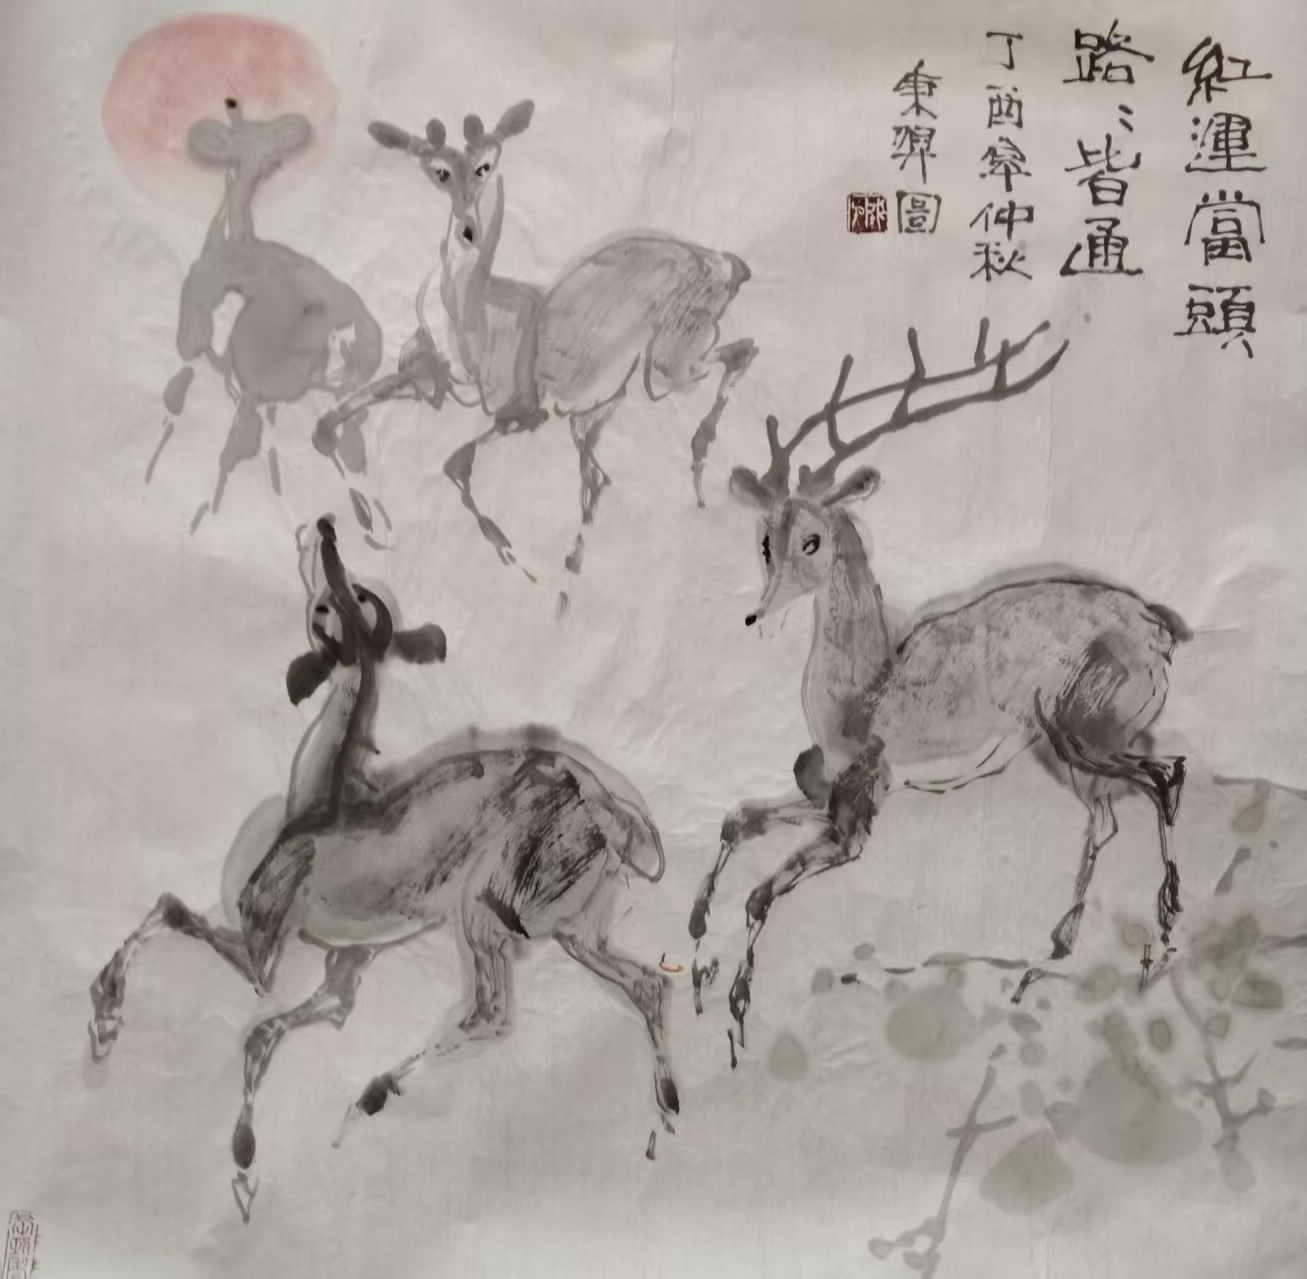 紅運當頭
路〻皆通
丁酉年仲秋
秉羿圖